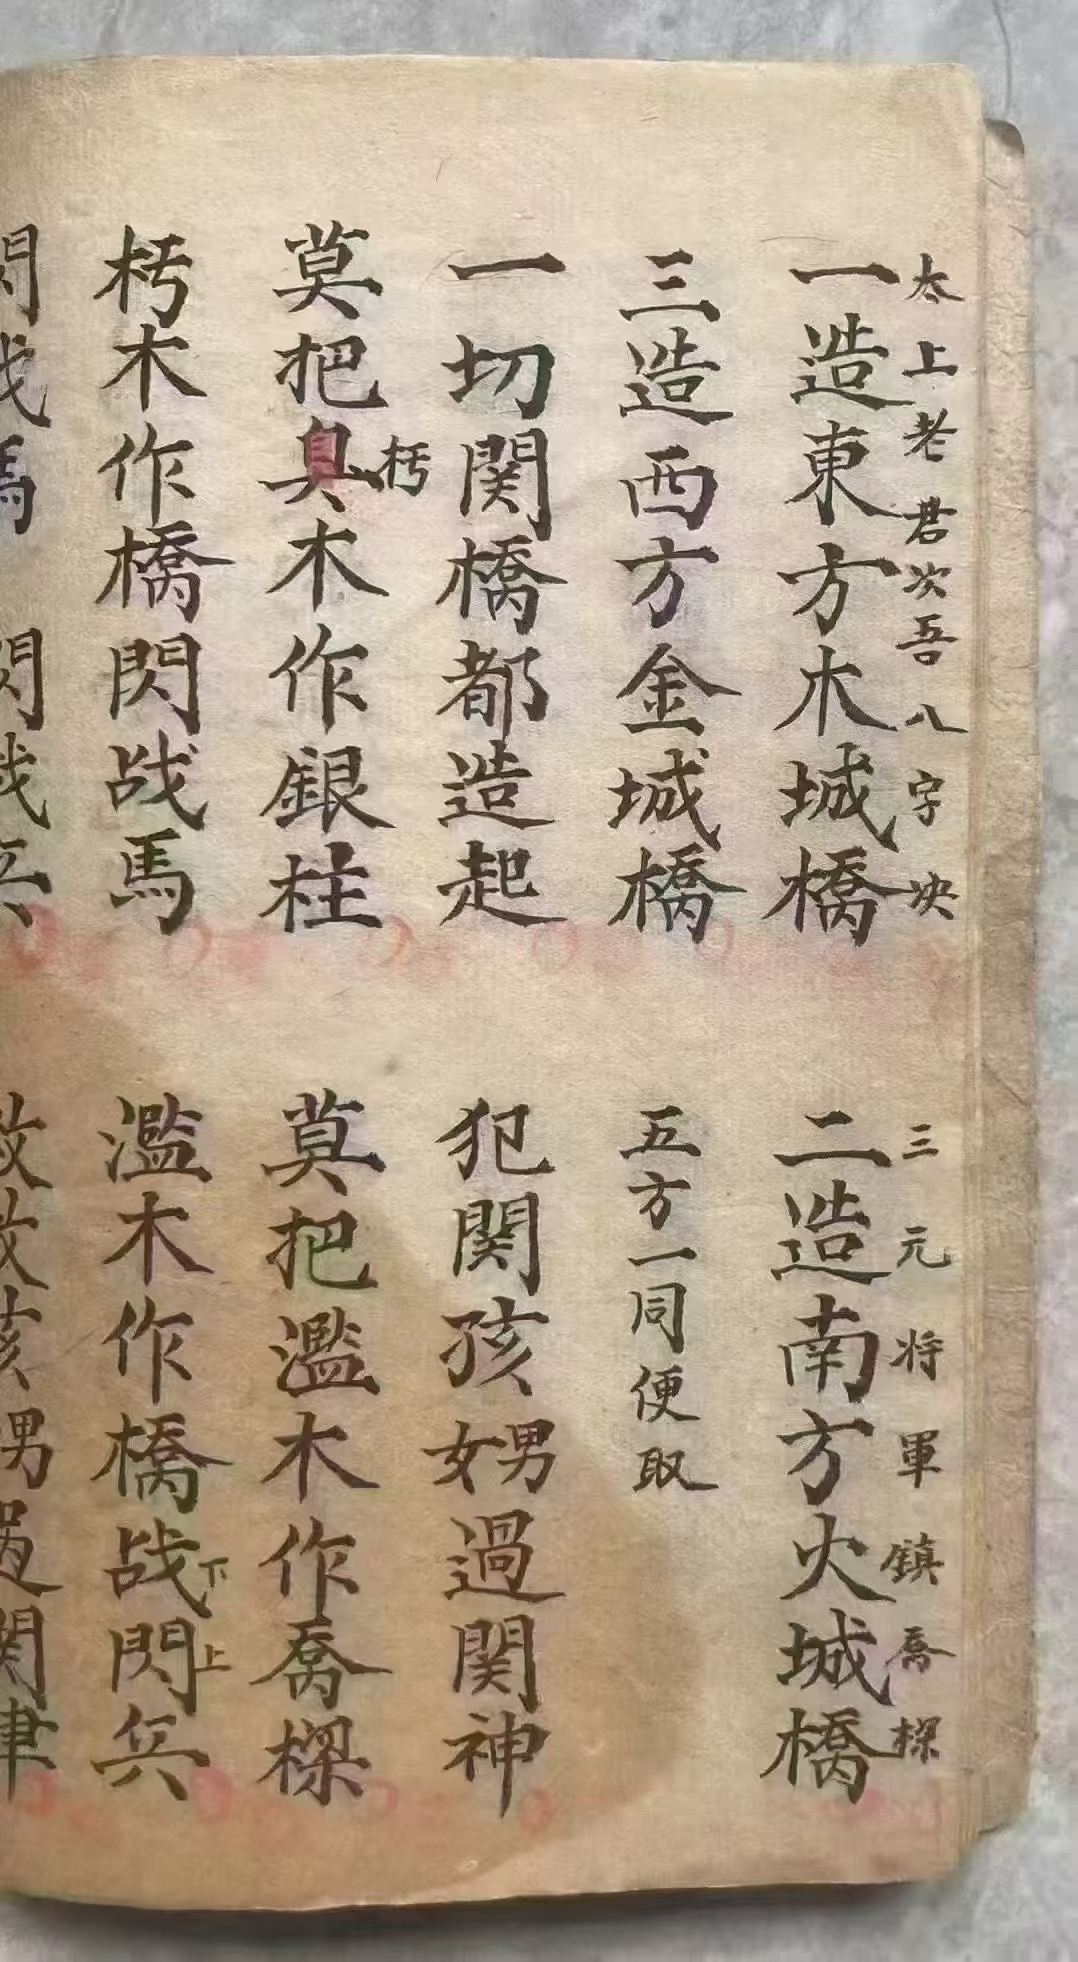 太上老君次吾八字块
三元将軍鎮喬樑
一造東方木城橋
二造南方火城橋
三造西方金城橋
五方一同便取
一切関橋都造起
犯関孩女男過関神
莫把臭木作銀柱
朽
莫把濫木作喬樑
朽木作橋閃战馬
濫木作橋战下閃上兵